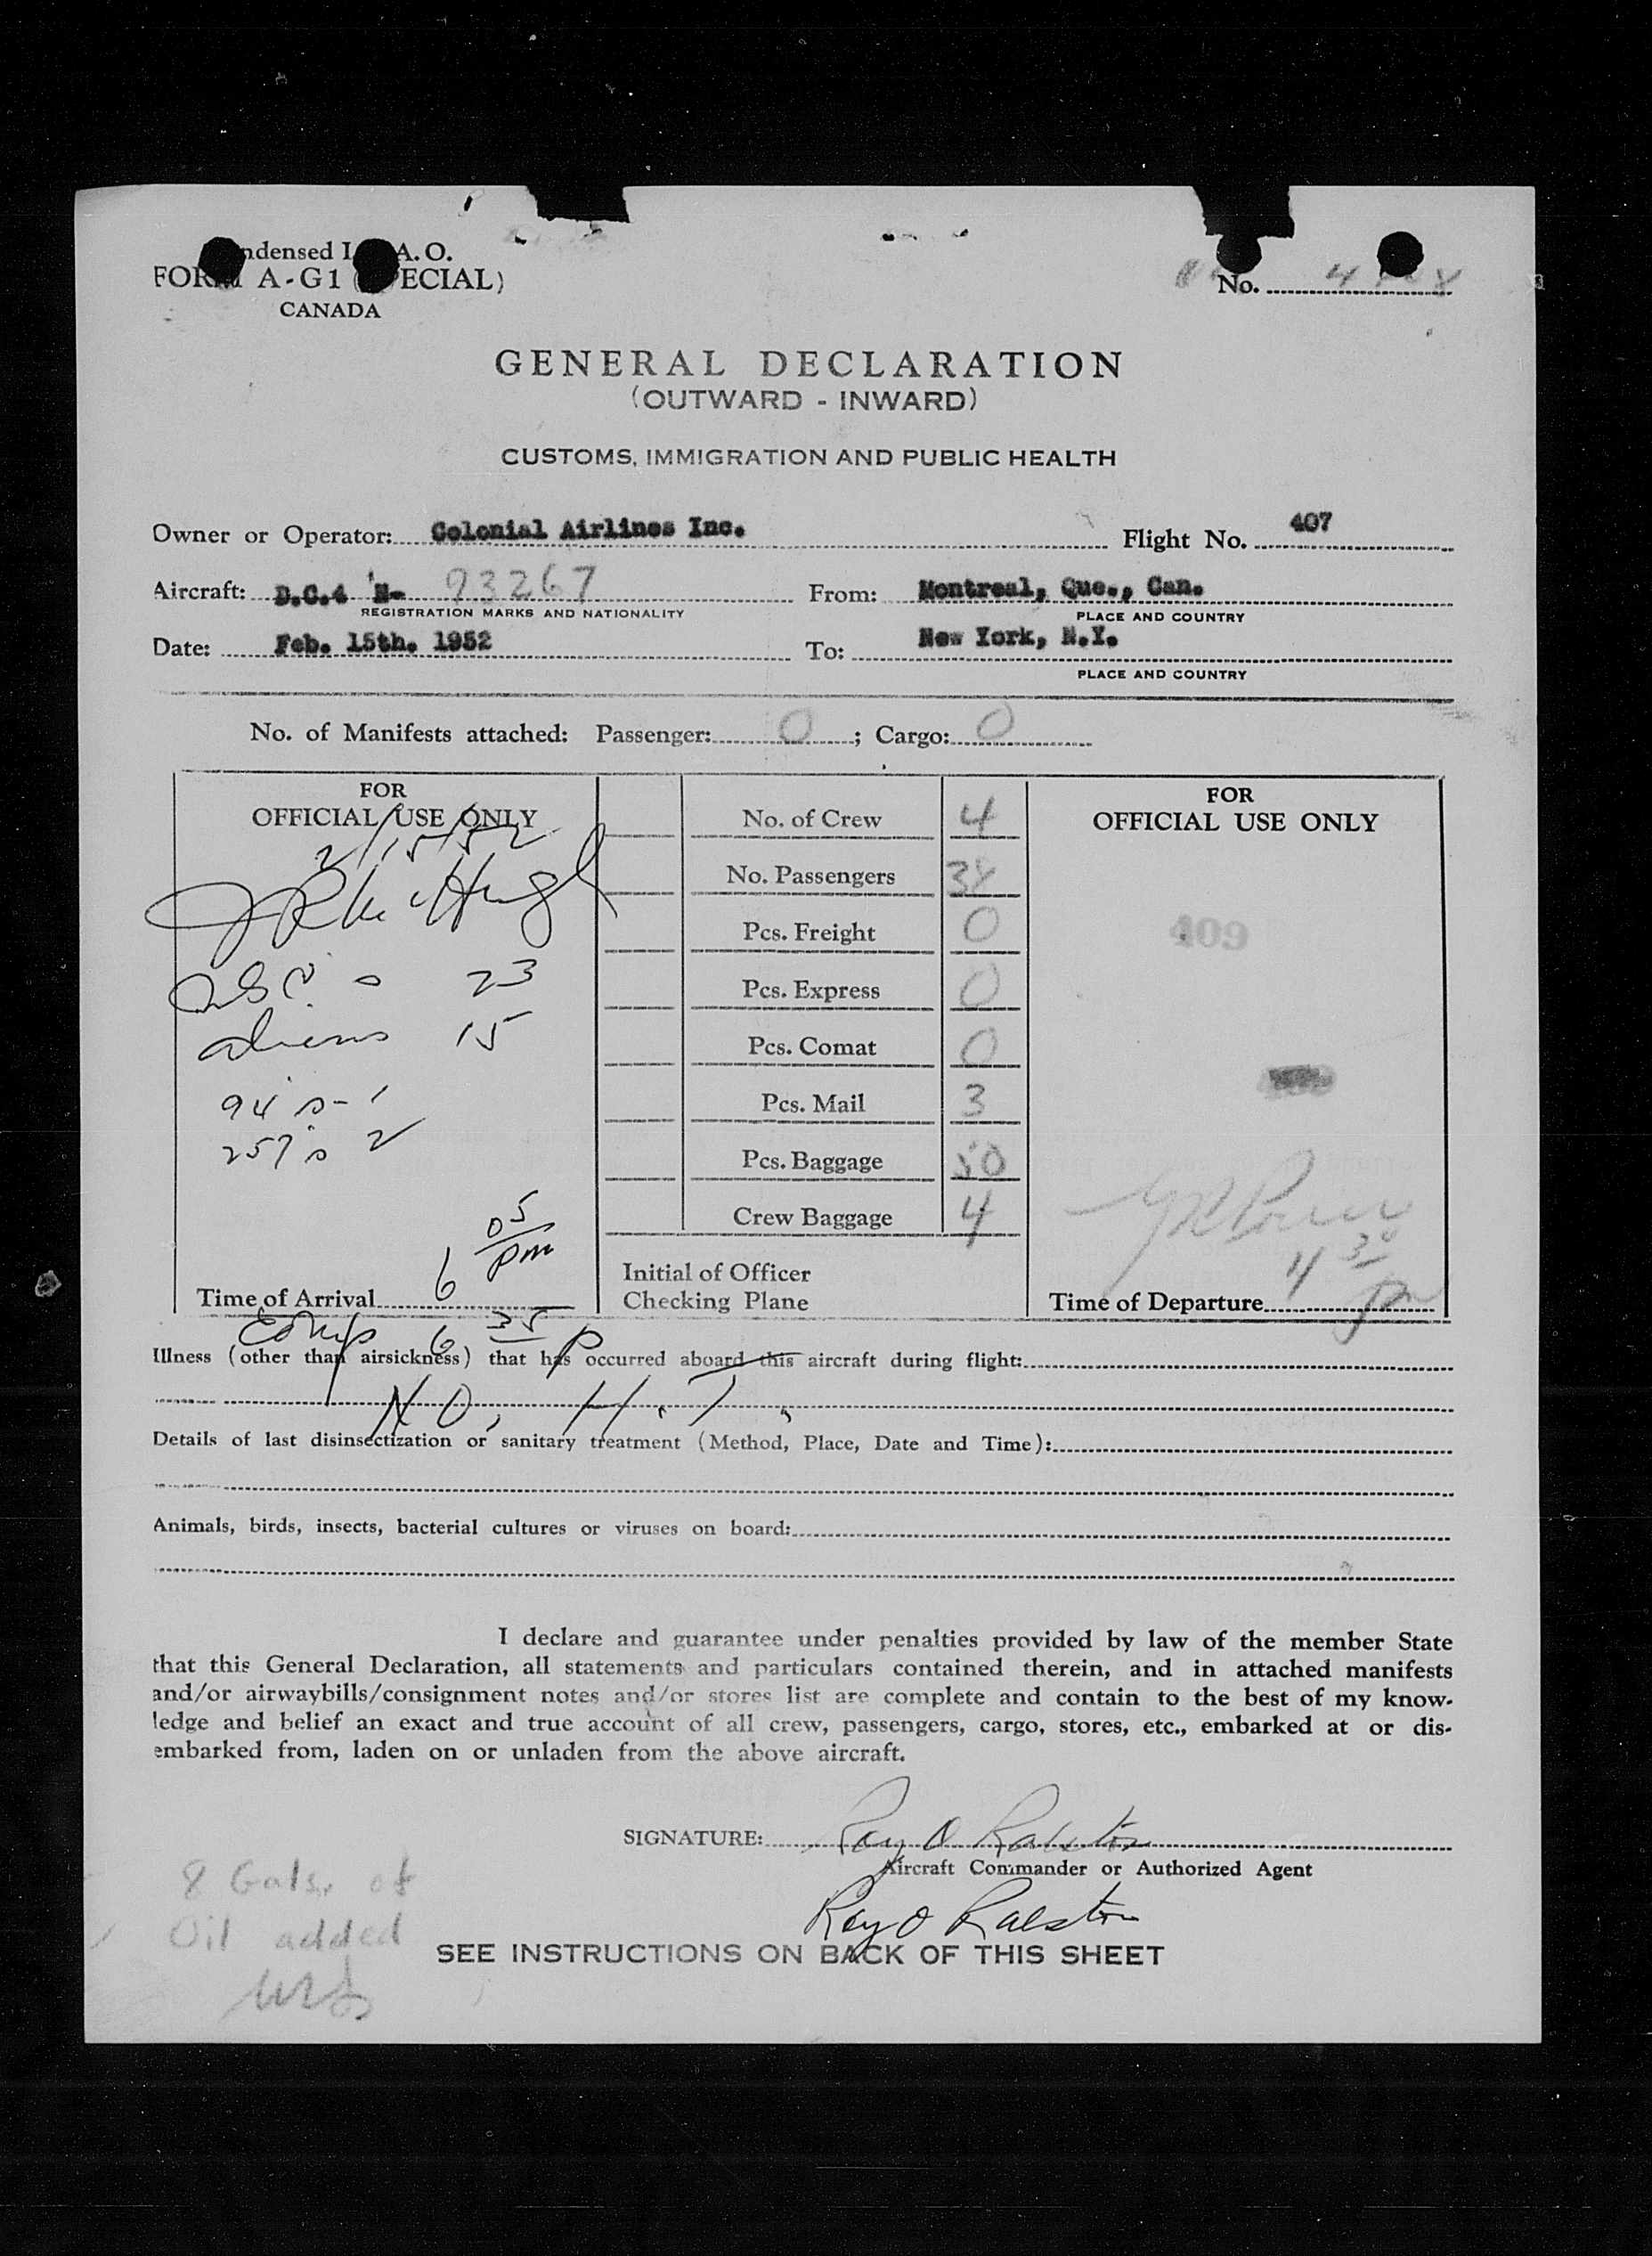 ndensed I A.O.
FORM A-G1 ( ECIAL)
CANADA
No.
GENERAL DECLARATION
(OUTWARD - INWARD)
CUSTOMS, IMMIGRATION AND PUBLIC HEALTH
Owner or Operator: Colonial Airlines Inc. Flight No. 407
Aircraft: D.C.4 N- 93267 From: Montreal, Que., Can.
REGISTRATION MARKS AND NATIONALITY PLACE AND COUNTRY
Date: Feb. 15th. 1952 To: New York, N.Y.
PLACE AND COUNTRY
No. of Manifests attached: Passenger: 0 ; Cargo: 0
FOR
OFFICIAL USE ONLY
2/15/52
23
aliens 15
94's - 1
257's 2
6 05 pm
Time of Arrival
No. of Crew 4
No. Passengers 38
Pcs. Freight 0
Pcs. Express 0
Pcs. Comat 0
Pcs. Mail 3
Pcs. Baggage 50
Crew Baggage 4
Initial of Officer
Checking Plane
FOR
OFFICIAL USE ONLY
409
4 30
Time of Departure pm
Comp 6 35 P
Illness (other than airsickness) that has occurred aboard this aircraft during flight:
Details of last disinsectization or sanitary treatment (Method, Place, Date and Time):
Animals, birds, insects, bacterial cultures or viruses on board:
I declare and guarantee under penalties provided by law of the member State
that this General Declaration, all statements and particulars contained therein, and in attached manifests
and/or airwaybills/consignment notes and/or stores list are complete and contain to the best of my know-
ledge and belief an exact and true account of all crew, passengers, cargo, stores, etc., embarked at or dis-
embarked from, laden on or unladen from the above aircraft.
SIGNATURE: Ray O Ralston
Aircraft Commander or Authorized Agent
Ray O Ralston
8 Gals. of
Oil added
SEE INSTRUCTIONS ON BACK OF THIS SHEET